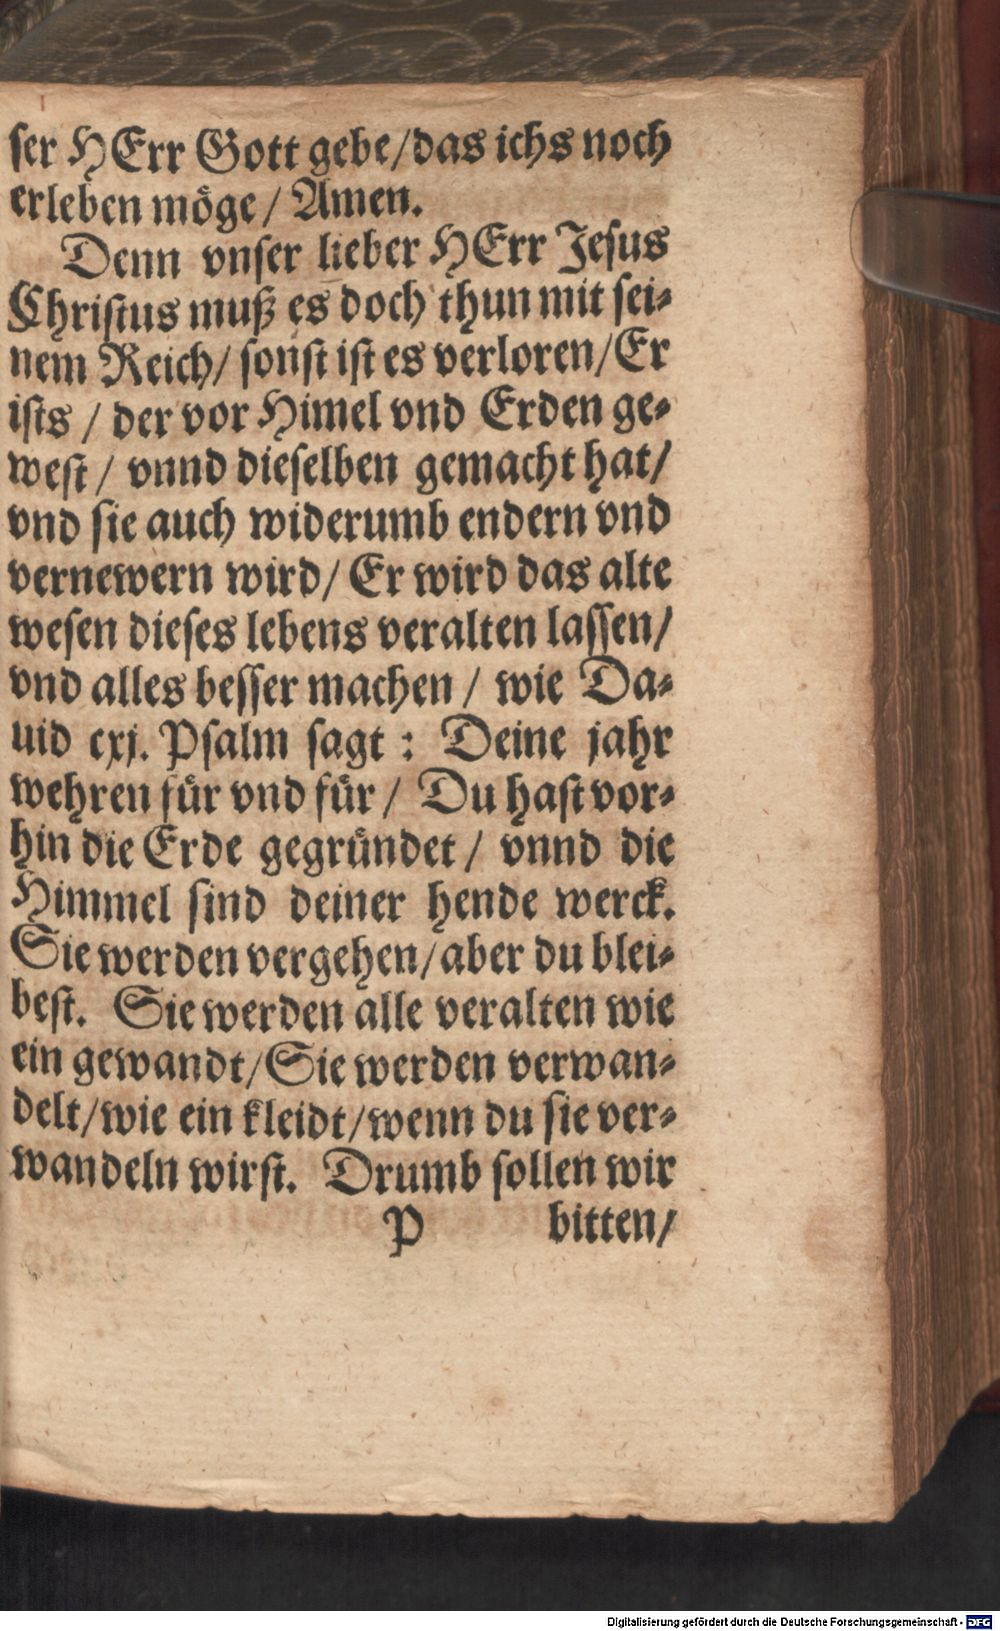 ſer HErr Gott gebe/das ichs noch
erleben möge/ Amen.
Denn vnſer lieber HErr Jeſus
Chriſtus muß es doch thun mit ſei⸗
nem Reich/ ſonſt iſt es verloren/Er
iſts / der vor Himel vnd Erden ge⸗
weſt / vnnd dieſelben gemacht hat/
vnd ſie auch widerumb endern vnd
vernewern wird/ Er wird das alte
weſen dieſes lebens veralten laſſen/
vnd alles beſſer machen / wie Da⸗
uid cxj. Pſalm ſagt : Deine jahr
wehren für vnd für / Du haſt vor⸗
hin die Erde gegründet / vnnd die
Himmel ſind deiner hende werck.
Sie werden vergehen/aber du blei⸗
beſt. Sie werden alle veralten wie
ein gewandt/Sie werden verwan⸗
delt/wie ein kleidt/wenn du ſie ver⸗
wandeln wirſt. Drumb ſollen wir
P bitten/
Digitalisierung gefördert durch die Deutsche Forschungsgemeinschaft - DFG